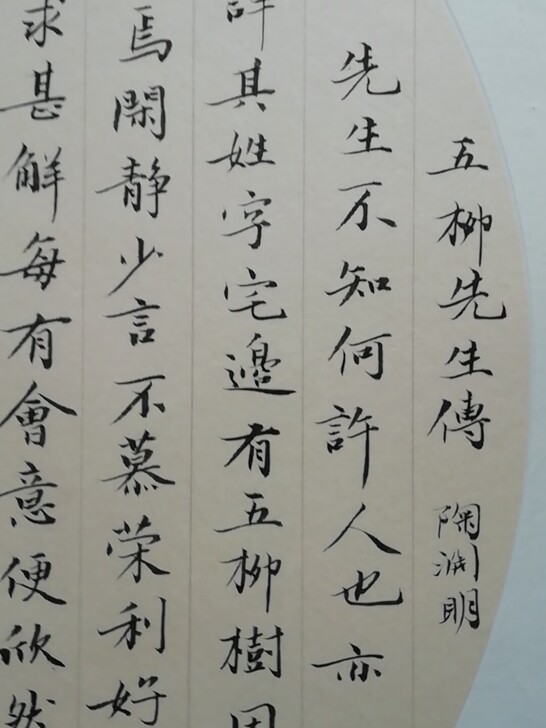 五柳先生傳 陶淵明
先生不知何許人也亦
其姓字宅邊有五柳樹因
焉閑靜少言不慕荣利好
求甚解每有會意便欣然